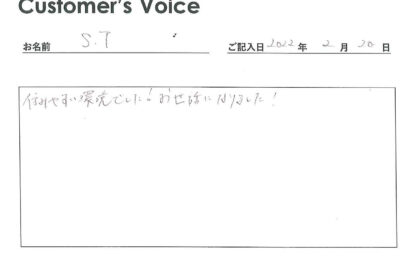 Customer's Voice
お名前 S.T ご記入日 2022 年 2 月 20 日
住みやすい環境でした！お世話になりました！